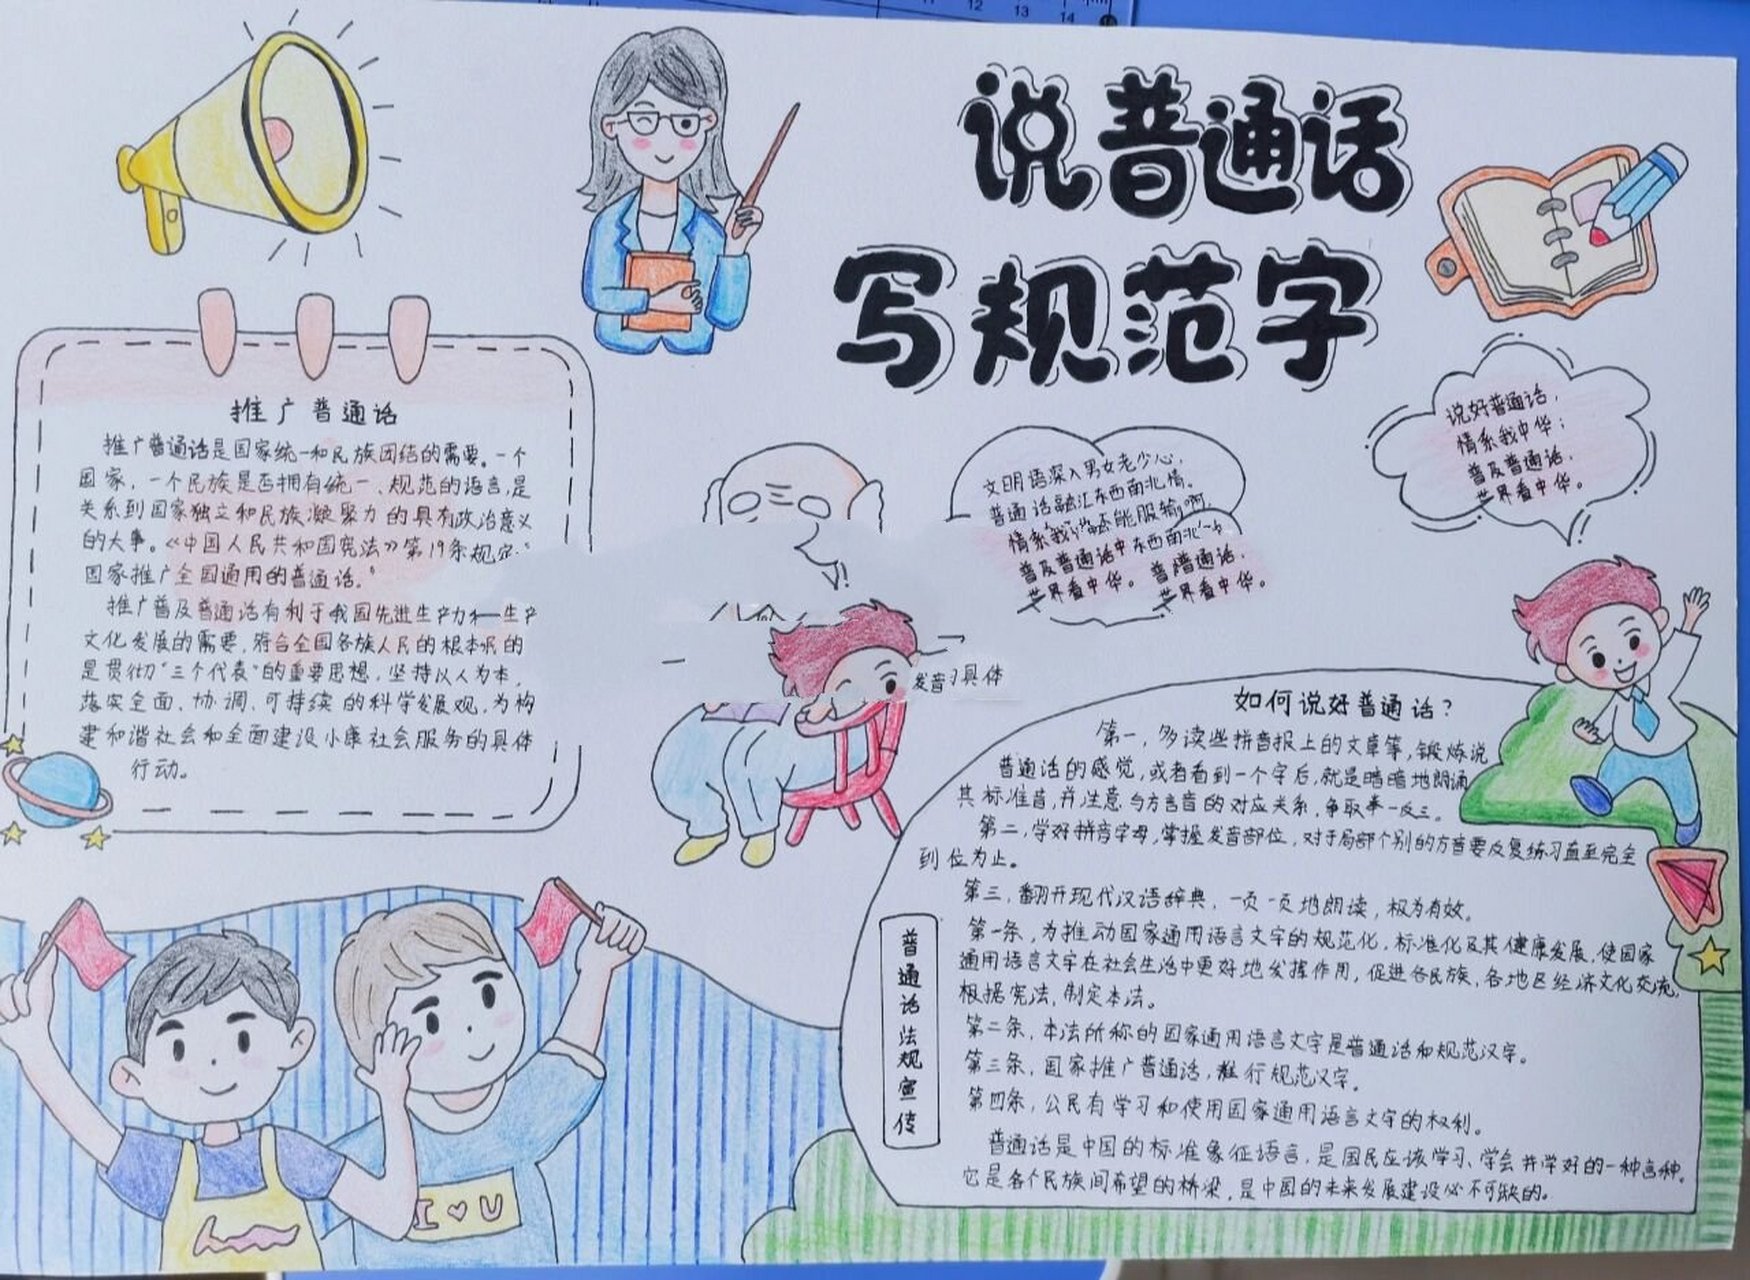 说普通话
写规范字
推广普通话
推广普通话是国家统一和民族团结的需要。一个
国家，一个民族是否拥有统一、规范的语言，是
关系到国家独立和民族凝聚力的具有政治意义
的大事。《中国人民共和国宪法》第19条规定："
国家推广全国通用的普通话。"
推广普及普通话有利于我国先进生产力
文化发展的需要，符合全国各族人民的根本
是贯彻"三个代表"的重要思想，坚持以人为本，
落实全面、协调、可持续的科学发展观，为构
建和谐社会和全面建设小康社会服务的具体
行动。
文明语深入男女老少心，
普通话融汇东西南北情。
情系我
普及普通话中东西南北
世界看中华。
普通话，
世界看中华。
说好普通话，
情系我中华；
普及普通话，
世界看中华。
发音 具体
如何说好普通话？
第一，多读些拼音报上的文章等，锻炼说
普通话的感觉，或者看到一个字后，就是暗暗地朗诵
其标准音，并注意与方言音的对应关系，争取举一反三。
第二，学好拼音字母，掌握发音部位，对于局部个别的方音要反复练习直至完全
到位为止。
第三，翻开现代汉语辞典，一页一页地朗读，极为有效。
普通话法规宣传
第一条，为推动国家通用语言文字的规范化，标准化及其健康发展，使国家
通用语言文字在社会生活中更好地发挥作用，促进各民族，各地区经济文化交流，
根据宪法，制定本法。
第二条，本法所称的国家通用语言文字是普通话和规范汉字。
第三条，国家推广普通话，推行规范汉字。
第四条，公民有学习和使用国家通用语言文字的权利。
普通话是中国的标准象征语言，是国民应该学习、学会并学好的一种言种。
它是各个民族间希望的桥梁，是中国的未来发展建设必不可缺的。
I ♥ U